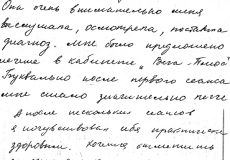 Она очень внимательно меня
выслушала, осмотрела, поставила
диагноз. Мне было предложено
лечение в кабинете
Буквально после первого сеанса
мне стало значительно легче
А после нескольких сеансов
я почувствовал себя практически
здоровым. Хочется отметить